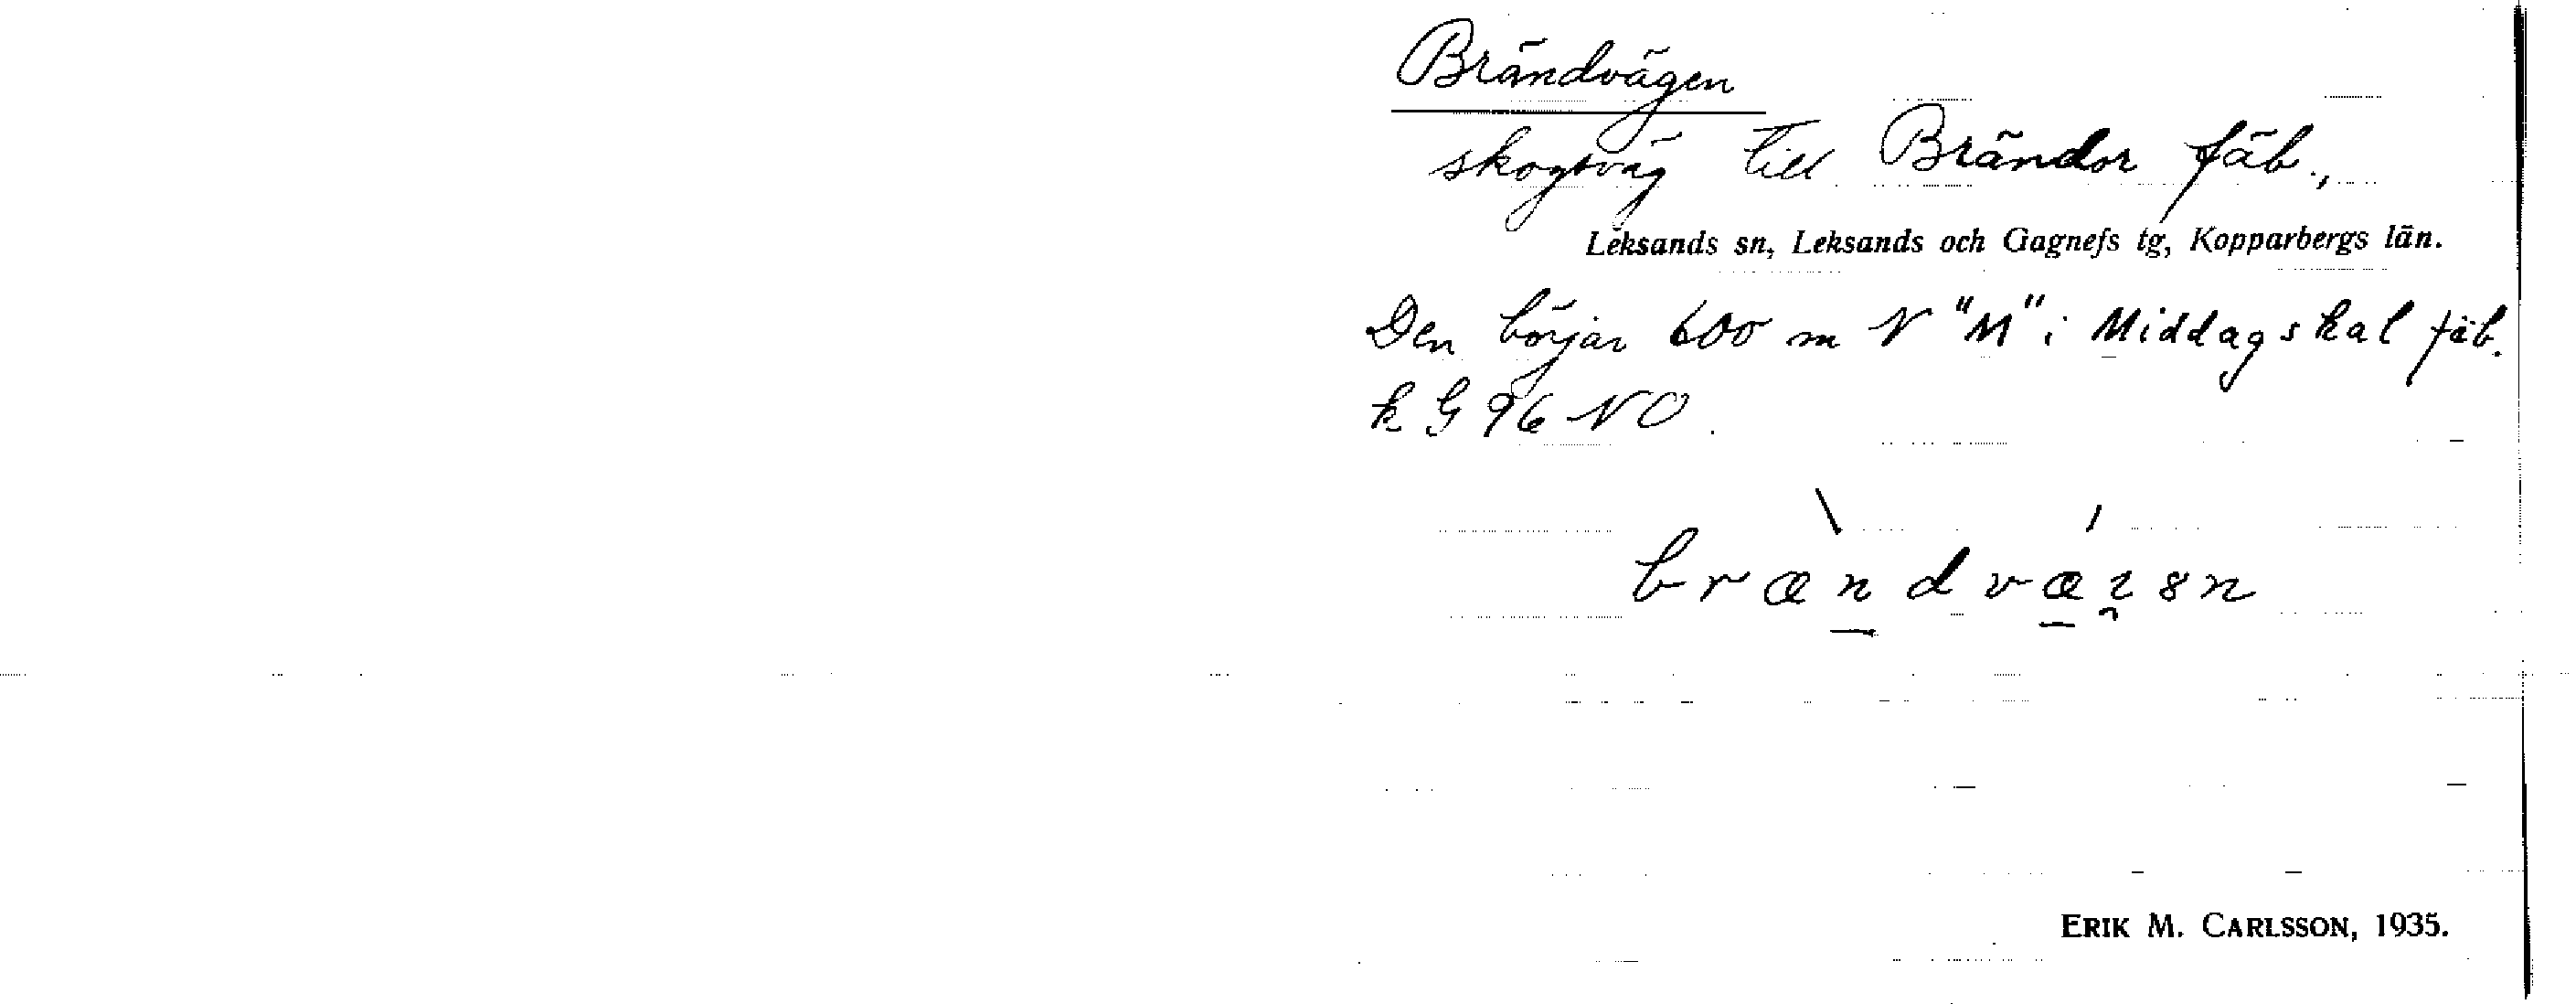 Brändvägen
skogsväg till Brändor fäb.,
Leksands sn, Leksands och Gagnefs tg, Kopparbergs län.
Den börjar 600 m N "M" i Middagskal fäb.
k G 96 NO.
ERIK M. CARLSSON, 1935.